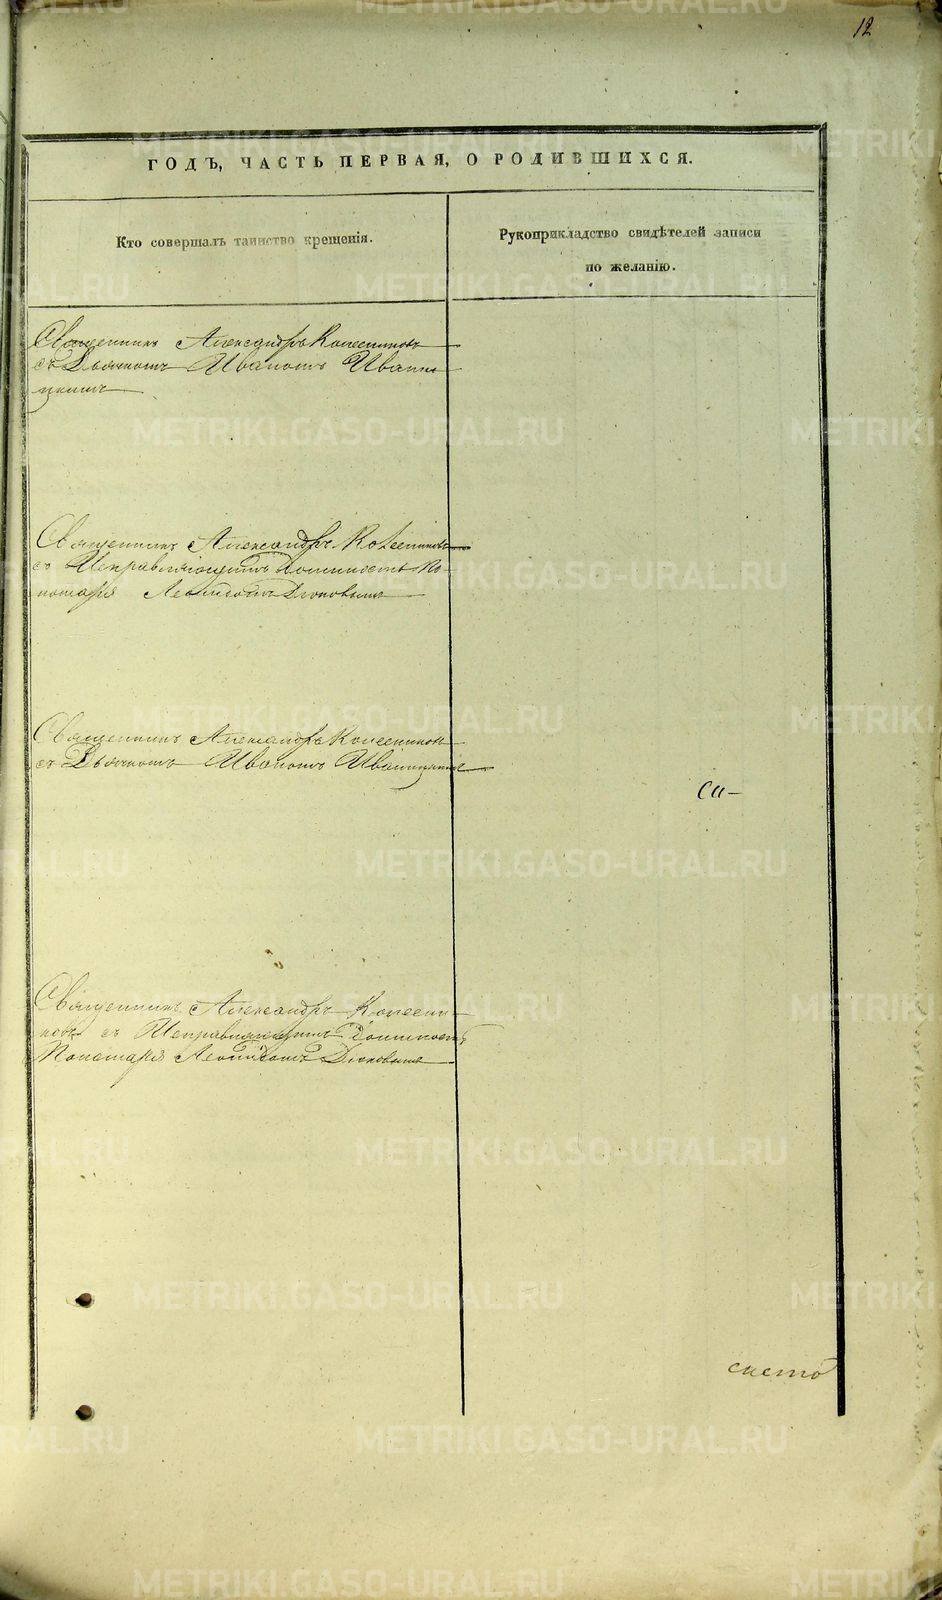 12
ГОДЪ, ЧАСТЬ ПЕРВАЯ, О РОДИВШИХСЯ.
Кто совершалъ таинство крещенія.
Рукоприкладство свидѣтелей записи
по желанію.
Священникъ Александръ Колесниковъ
съ Дьячкомъ Иваномъ Иваниц
Священникъ Александръ Колесниковъ
съ Исправляющимъ Должность По-
номаря Леонидомъ
Священникъ Александръ Колесниковъ
съ Дьячкомъ Иваномъ
Священникъ Александръ Колесни-
ковъ съ Исправляющимъ Должность
Пономаря Леонидомъ
METRIKI.GASO-URAL.RU